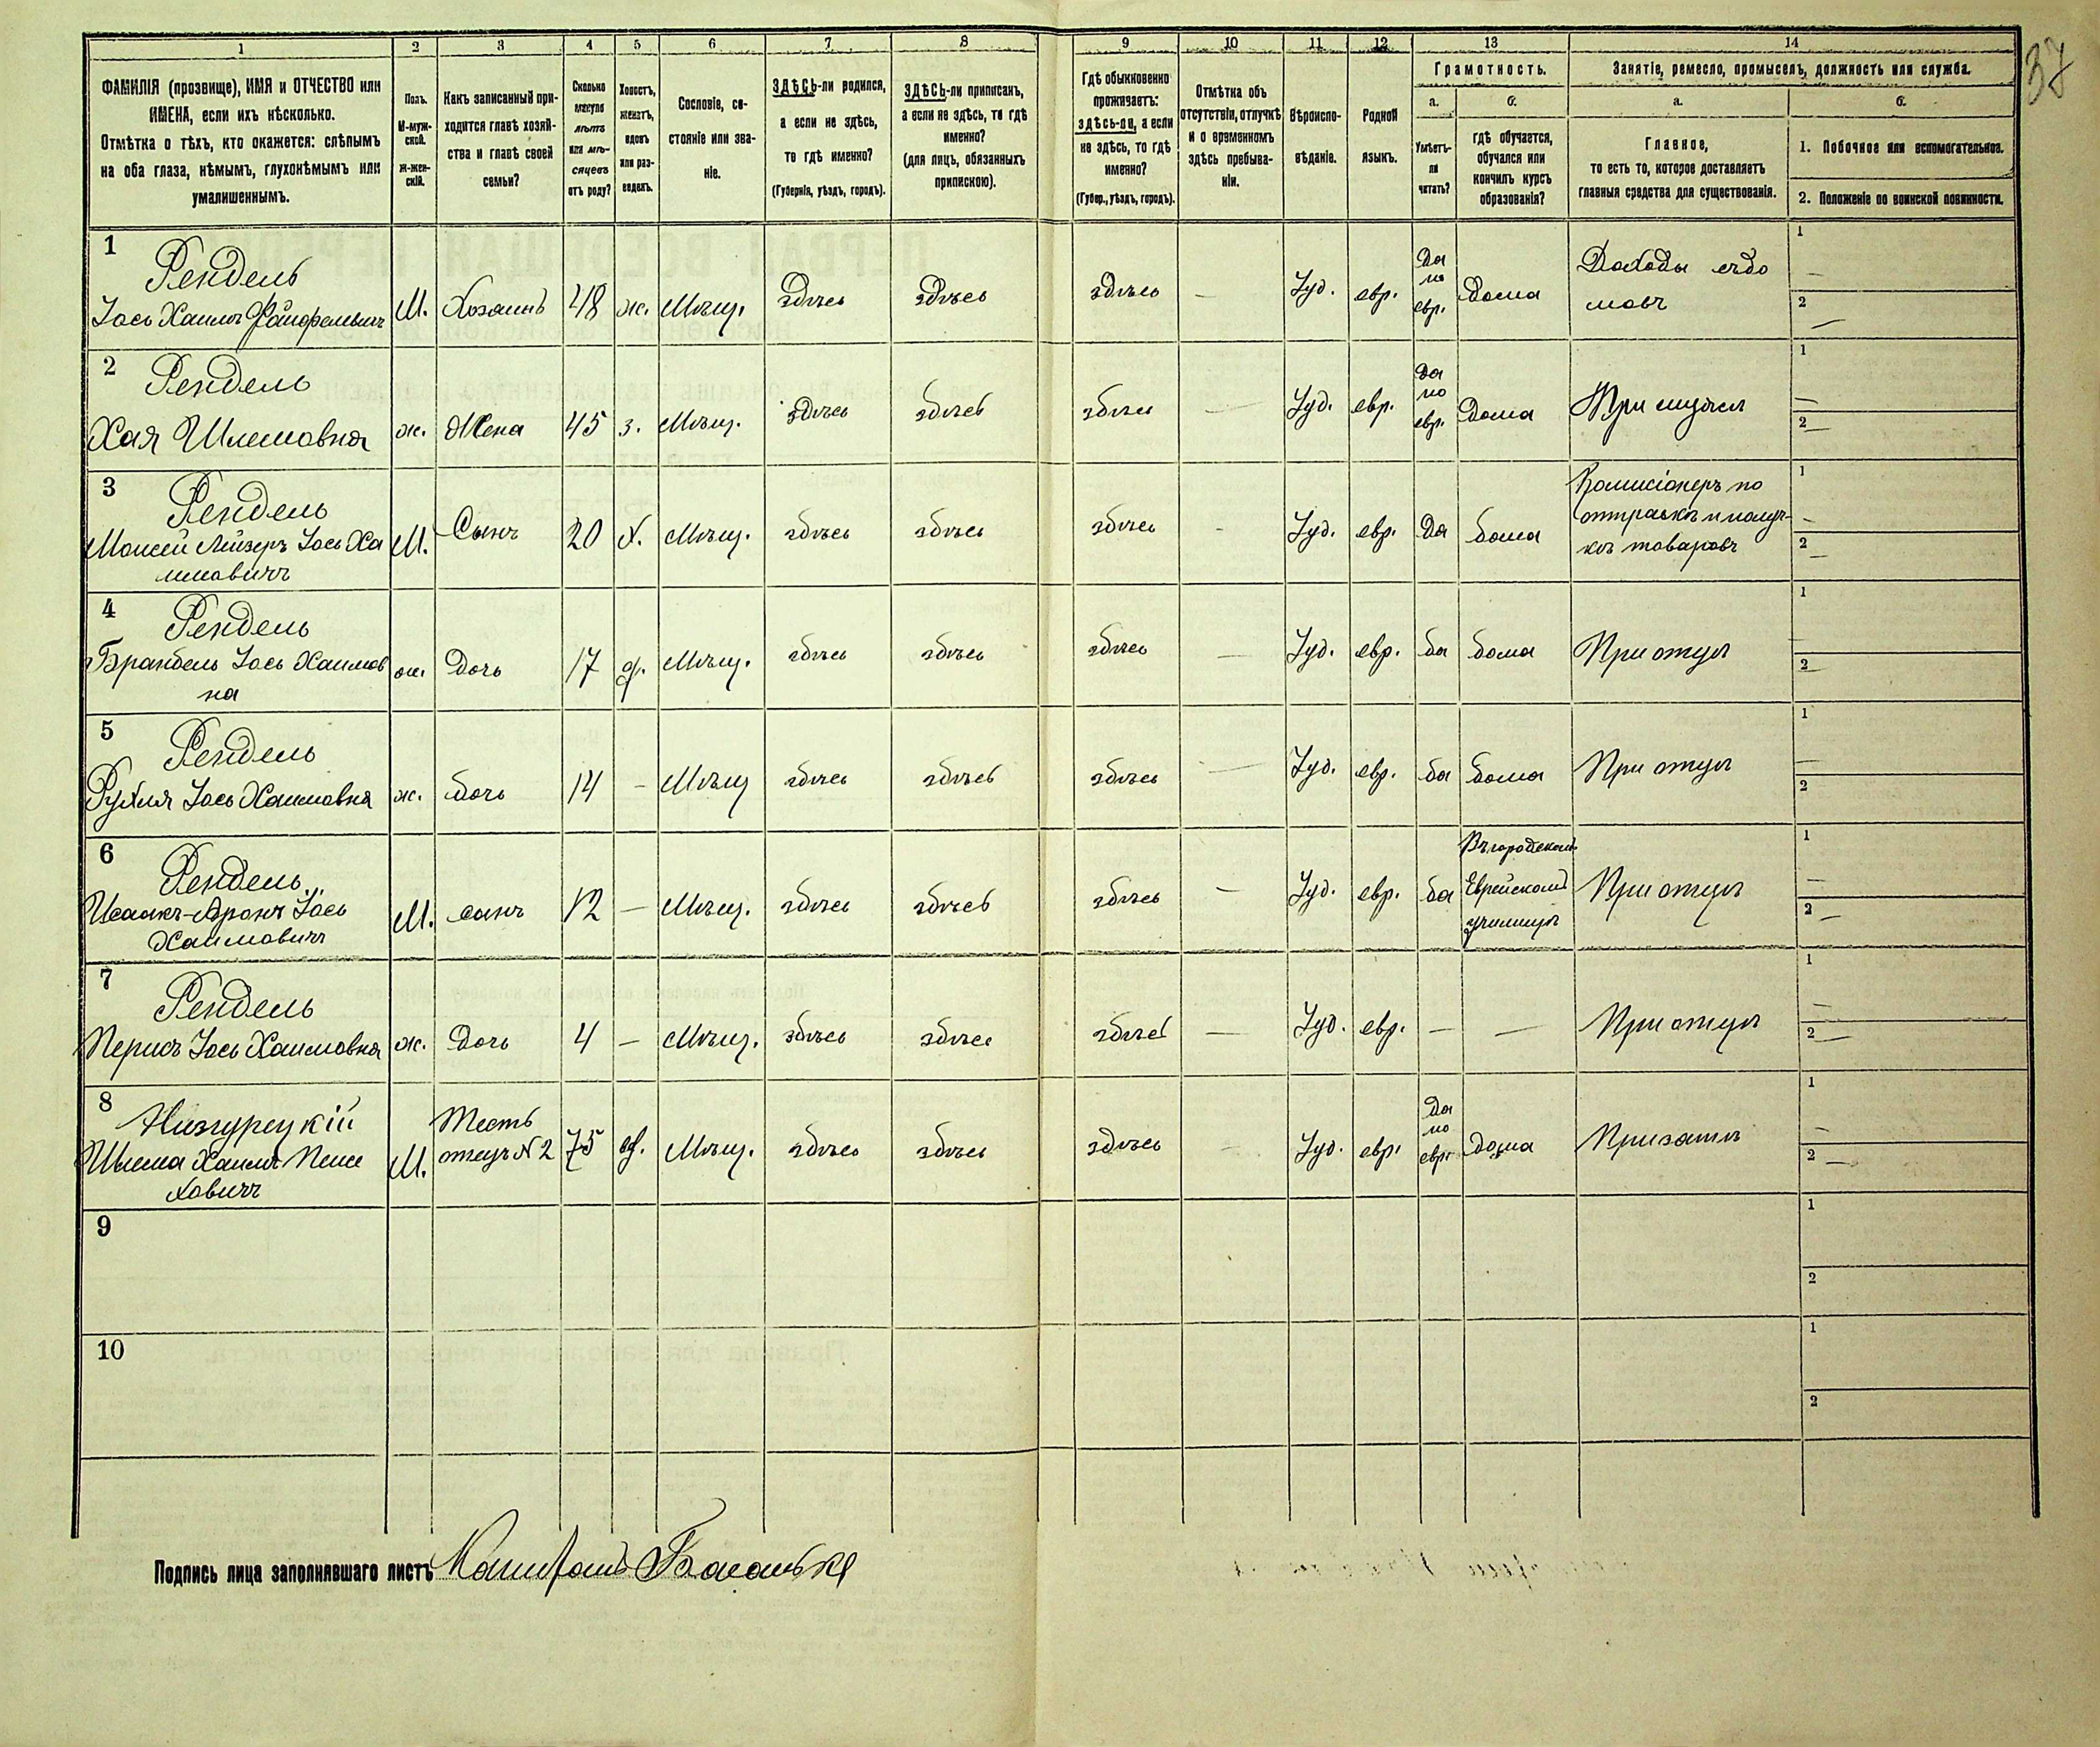 37
1 2 3 4 5 6 7 8 9 10 11 12 13 14
ФАМИЛІЯ (прозвище), ИМЯ и ОТЧЕСТВО или
ИМЕНА, если ихъ нѣсколько.
Отмѣтка о тѣхъ, кто окажется: слѣпымъ
на оба глаза, нѣмымъ, глухонѣмымъ или
умалишеннымъ.
Полъ.
М-муж-
ской.
Ж-жен-
скій.
Какъ записанный при-
ходится главѣ хозяй-
ства и главѣ своей
семьи?
Сколько
минуло
лѣтъ
или мѣ-
сяцевъ
отъ роду?
Холостъ,
женатъ,
вдовъ
или раз-
веденъ.
Сословіе, со-
стояніе или зва-
ніе.
ЗДѢСЬ-ли родился,
а если не здѣсь,
то гдѣ именно?
(Губернія, уѣздъ, городъ).
ЗДѢСЬ-ли приписанъ,
а если не здѣсь, то гдѣ
именно?
(для лицъ, обязанныхъ
припискою).
Гдѣ обыкновенно
проживаетъ:
здѣсь-ли, а если
не здѣсь, то гдѣ
именно?
(Губер., уѣздъ, городъ).
Отмѣтка объ
отсутствіи, отлучкѣ
и о временномъ
здѣсь пребыва-
ніи.
Вѣроиспо-
вѣданіе.
Родной
языкъ.
Грамотность.
а.
Умѣетъ-
ли
читать?
б.
гдѣ обучается,
обучался или
кончилъ курсъ
образованія?
Занятіе, ремесло, промыселъ, должность или служба.
а.
Главное,
то есть то, которое доставляетъ
главныя средства для существованія.
б.
1. Побочное или вспомогательное.
2. Положеніе по воинской повинности.
1
Рендель
Іось Хаимъ
М.
Хозяинъ
48
ж.
Мѣщ.
здѣсь
здѣсь
здѣсь
—
Іуд.
евр.
Да
по
евр.
Дома
Доходы съ до
мовъ
1 —
2 —
2
Рендель
Хая Шлемовна
ж.
Жена
45
з.
Мѣщ.
здѣсь
здѣсь
здѣсь
—
Іуд.
евр.
Да
по
евр.
Дома
При мужѣ
1 —
2 —
3
Рендель
Моисей Лейзеръ Іось Ха
имовичъ
М.
Сынъ
20
х.
Мѣщ.
здѣсь
здѣсь
здѣсь
-
Іуд.
евр.
Да
дома
Комисіонеръ по
отправкѣ и получ-
кѣ товаровъ
1 —
2 —
4
Рендель
Брандель Іось Хаимов
на
ж.
Дочь
17
д.
Мѣщ.
здѣсь
здѣсь
здѣсь
—
Іуд.
евр.
да
дома
При отцѣ
1 —
2 —
5
Рендель
Рухля Іось Хаимовна
ж.
дочь
14
—
Мѣщ
здѣсь
здѣсь
здѣсь
—
Іуд.
евр.
да
дома
При отцѣ
1 —
2
6
Рендель
Исаакъ-Аронъ Іось
Хаимовичъ
М.
сынъ
12
—
Мѣщ.
здѣсь
здѣсь
здѣсь
—
Іуд.
евр.
да
Въ городском
Еврейском
училищѣ
При отцѣ
1 —
2 —
7
Рендель
Перись Іось Хаимовна
ж.
Дочь
4
—
Мѣщ.
здѣсь
здѣсь
здѣсь
—
Іуд.
евр.
—
—
При отцѣ
1 —
2 —
8
Шлема Хаимъ Пейсе
ховичъ
М.
Тесть
отецъ N 2
75
вд.
Мѣщ.
здѣсь
здѣсь
здѣсь
—
Іуд.
евр.
Да
по
евр.
дома
При зятѣ
1 —
2 —
9
1
2
10
1
2
Подпись лица заполнявшаго листъ